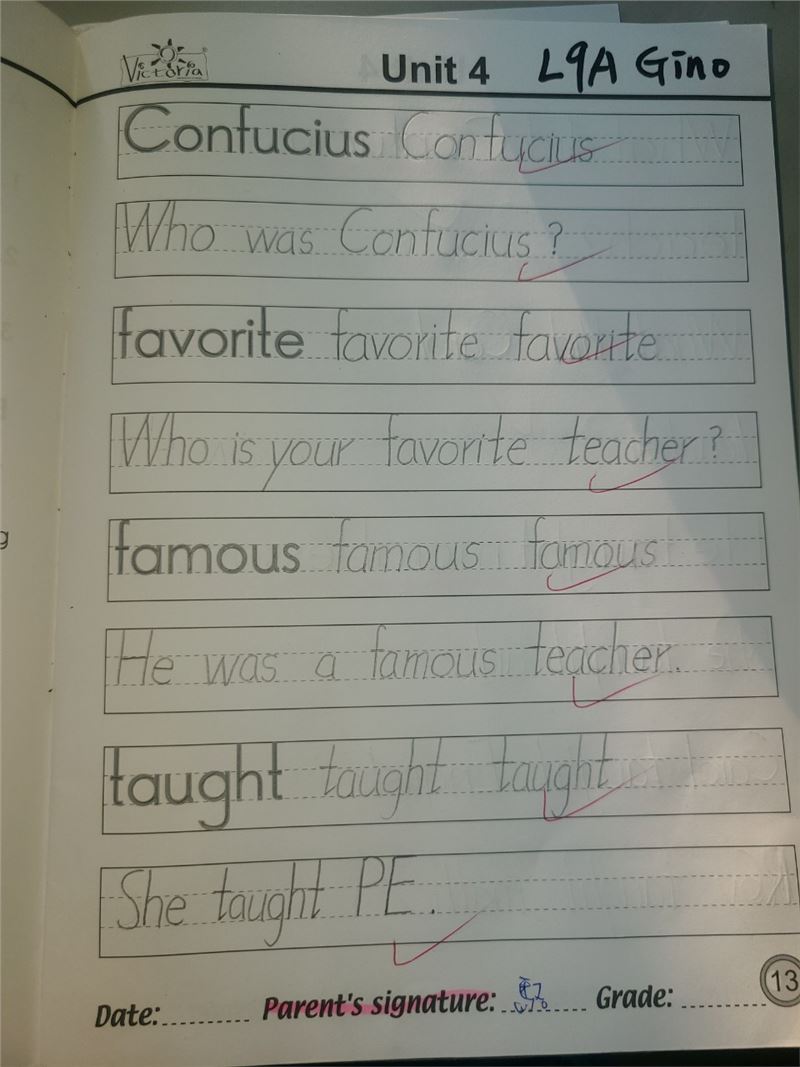 Victoria Unit 4 L9A Gino
Confucius Confucius
Who was Confucius?
favorite favorite favorite
Who is your favorite teacher?
famous famous famous
He was a famous teacher.
taught taught taught
She taught PE.
13
Date: Parent's signature: Grade: